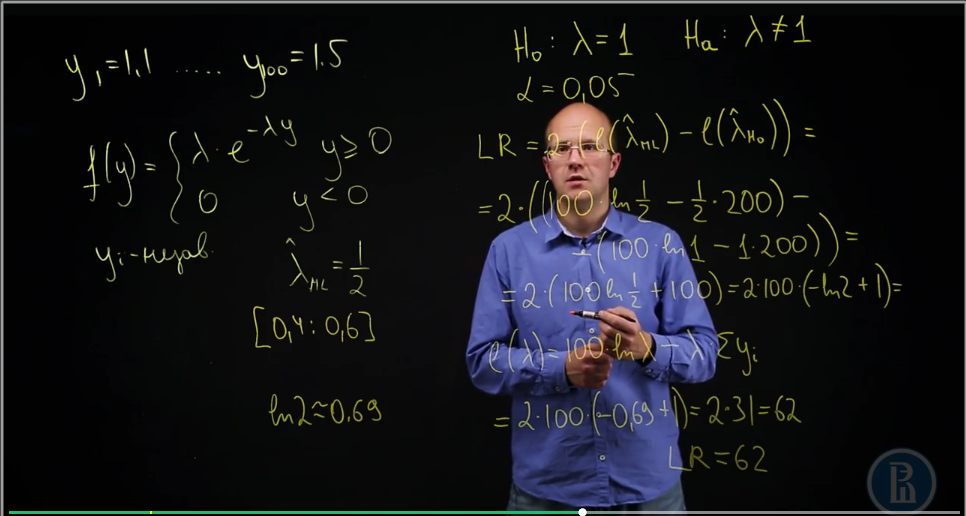 y₁=1.1 ..... y₁₀₀=1.5
f(y) = { λ·e^(-λy) y≥0
0 y<0
yᵢ-незав.
λ̂_ML = 1/2
[0,4; 0,6]
ln2≈0.69
H₀: λ=1 Hₐ: λ≠1
α=0,05
LR = 2·(ℓ(λ̂_ML) − ℓ(λ̂_H₀)) =
= 2·((100·ln 1/2 − 1/2·200) −
−(100·ln1 − 1·200)) =
= 2·(100 ln 1/2 + 100) = 2·100·(−ln2+1) =
ℓ(λ) = 100·lnλ − λ Σyᵢ
= 2·100·(−0,69+1) = 2·31 = 62
LR = 62